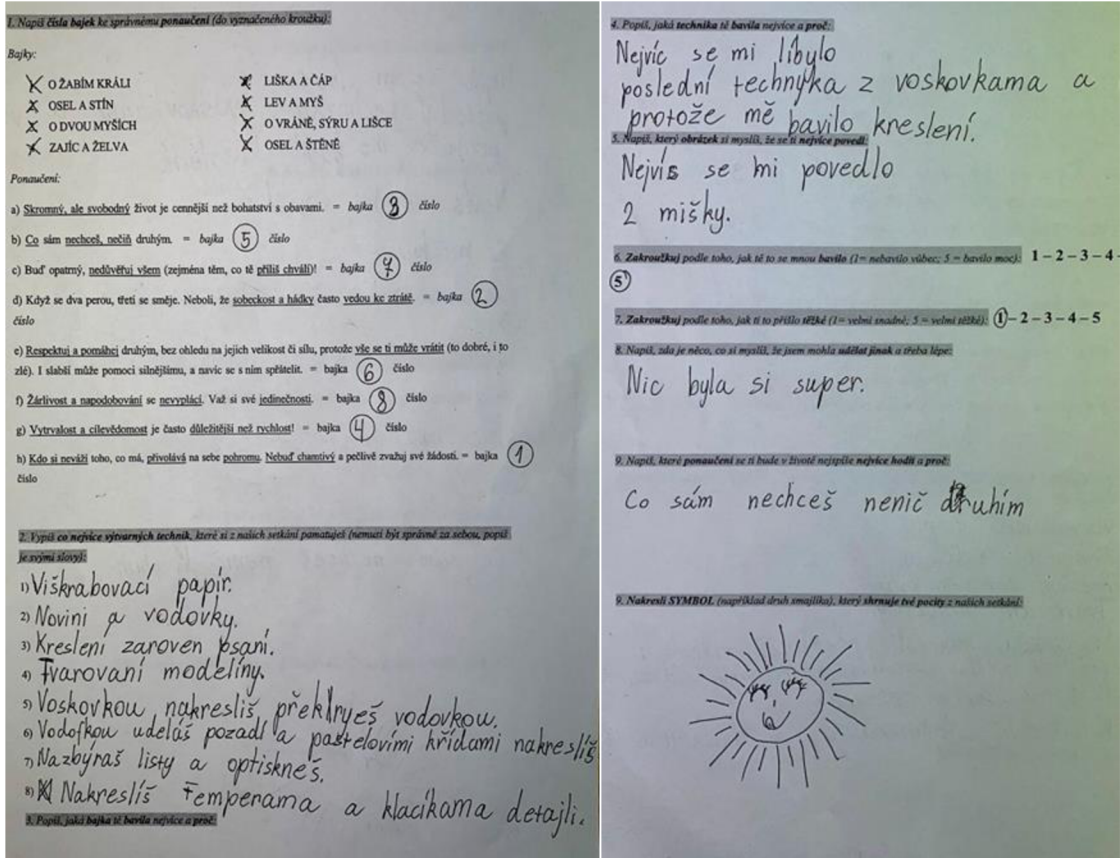 1. Napiš čísla bajek ke správnému ponaučení (do vyznačeného kroužku):
Bajky:
O ŽABÍM KRÁLI
OSEL A STÍN
O DVOU MYŠÍCH
ZAJÍC A ŽELVA
LIŠKA A ČÁP
LEV A MYŠ
O VRÁNĚ, SÝRU A LIŠCE
OSEL A ŠTĚNĚ
Ponaučení:
a) Skromný, ale svobodný život je cennější než bohatství s obavami. = bajka 3 číslo
b) Co sám nechceš, nečiň druhým. = bajka 5 číslo
c) Buď opatrný, nedůvěřuj všem (zejména těm, co tě příliš chválí)! = bajka 7 číslo
d) Když se dva perou, třetí se směje. Neboli, že sobeckost a hádky často vedou ke ztrátě. = bajka 2
číslo
e) Respektuj a pomáhej druhým, bez ohledu na jejich velikost či sílu, protože vše se ti může vrátit (to dobré, i to
zlé). I slabší může pomoci silnějšímu, a navíc se s ním spřátelit. = bajka 6 číslo
f) Žárlivost a napodobování se nevyplácí. Važ si své jedinečnosti. = bajka 8 číslo
g) Vytrvalost a cílevědomost je často důležitější než rychlost! = bajka 4 číslo
h) Kdo si neváží toho, co má, přivolává na sebe pohromu. Nebuď chamtivý a pečlivě zvažuj své žádosti. = bajka 1
číslo
2. Vypiš co nejvíce výtvarných technik, které si z našich setkání pamatuješ (nemusí být správně za sebou, popiš
je svými slovy):
1) Viškrabovací papír.
2) Novini a vodovky.
3) Kreslení zaroven psaní.
4) Tvarovaní modelíny.
5) Voskovkou nakresliš překryeš vodovkou.
6) Vodofkou udeláš pozadí a pastelovími křídami nakreslíš
7) Nazbýraš listy a optiskneš.
8) Nakreslíš Temperama a klacíkama detajli.
3. Popiš, jaká bajka tě bavila nejvíce a proč:
4. Popiš, jaká technika tě bavila nejvíce a proč:
Nejvíc se mi líbylo
poslední technyka z voskovkama a
protože mě bavilo kreslení.
5. Napiš, který obrázek si myslíš, že se ti nejvíce povedl:
Nejvís se mi povedlo
2 mišky.
6. Zakroužkuj podle toho, jak tě to se mnou bavilo (1= nebavilo vůbec; 5 = bavilo moc): 1 – 2 – 3 – 4 -
5
7. Zakroužkuj podle toho, jak ti to přišlo těžké (1= velmi snadné; 5 = velmi těžké): 1 – 2 – 3 – 4 – 5
8. Napiš, zda je něco, co si myslíš, že jsem mohla udělat jinak a třeba lépe:
Nic byla si super.
9. Napiš, které ponaučení se ti bude v životě nejspíše nejvíce hodit a proč:
Co sám nechceš nenič druhím
9. Nakresli SYMBOL (například druh smajlíka), který shrnuje tvé pocity z našich setkání: